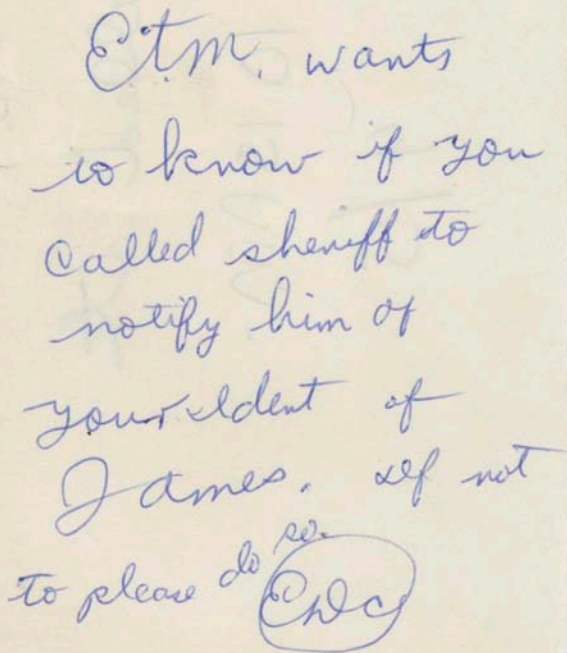 E.T.M. wants
to know if you
called sheriff to
notify him of
your ident of
James. if not
to please do so.
EDC